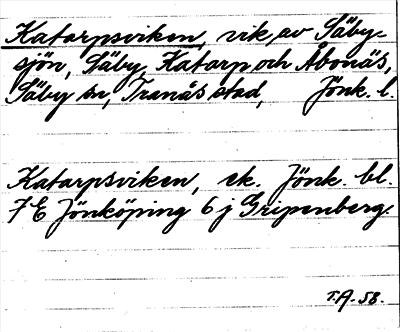 Katarpsviken, vik av Säby-
sjön, Säby, Katarp och Åbonäs,
Säby sn, Tranås stad, Jönk. l.
Katarpsviken, ek. Jönk. bl.
7 E Jönköping 6 j Gripenberg.
T.A. 58.